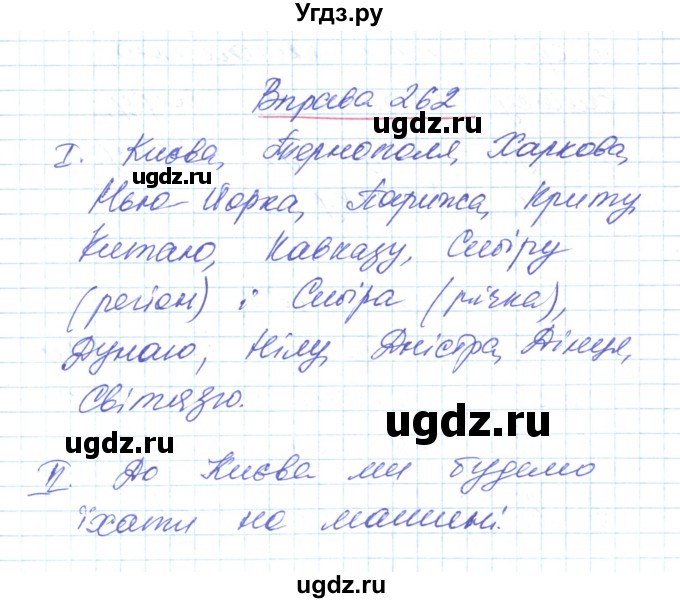 Угдз.ру
Вправа 262
ugdz.ru
I. Києва, Тернополя, Харкова,
ugdz.ru
Нью-Йорка, Парижа, Криту,
Китаю, Кавказу, Сибіру
(регіон) і Сибіра (річка),
ugdz.ru
Дунаю, Нілу, Дністра, Дінця,
Світязю.
ugdz.ru
ugdz.ru
II. До Києва ми будемо
їхати на машині.
ugdz.ru
ugdz.ru